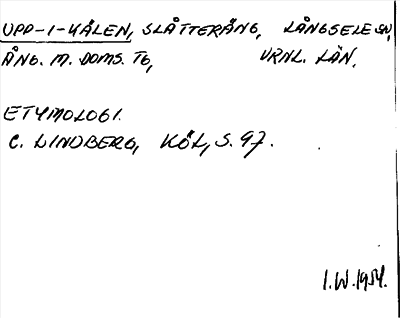 UPP-I-KÅLEN, SLÅTTERÄNG, LÅNGSELE SN,
ÅNG. M. DOMS. TG, VRNL. LÄN.
ETYMOLOGI.
C. LINDBERG, KÖL, S. 97.
I.W. 1954.